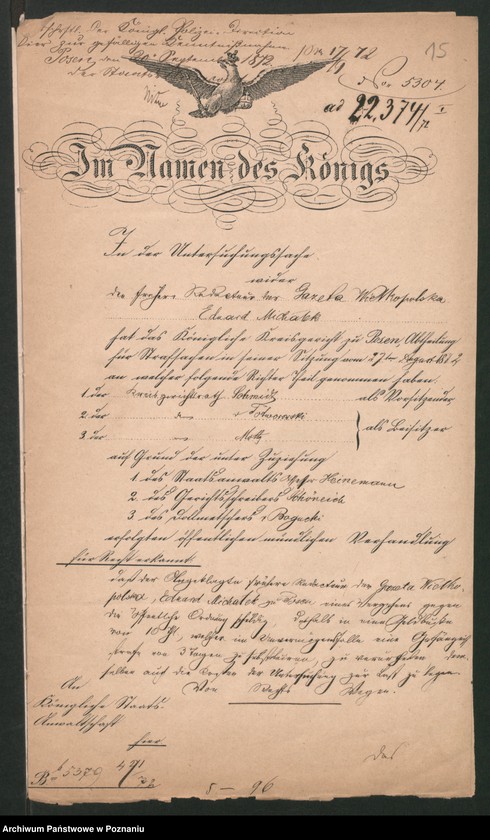 Abschft. der Königl. Polizei-Direktion
hier zur gefälligen Kenntnißnahme
Posen, den September 1872
Der Staats
15
5304.
ad 22,374/72 I
Im Namen des Königs
In der Untersuchungssache
wider
den früheren Redakteur der Gazeta Wielkopolska
Eduard Michałek
hat das Königliche Kreisgericht zu Posen, Abtheilung
für Strafsachen in seiner Sitzung vom 27ten August 1872
an welcher folgende Richter Theil genommen haben:
1. der Kreisgerichtsrath Schmidt als Vorsitzender
2. der
3. der Motz
als Beisitzer
auf Grund der unter Zuziehung
1. des Staatsanwalts Heinemann
2. des Gerichtsschreibers Schöneich
3. des Dollmetschers Bogucki
erfolgten öffentlichen mündlichen Verhandlung
für Recht erkannt
daß der Angeklagte frühere Redakteur der Gazeta Wielko-
polska, Eduard Michałek zu Posen eines Vergehens gegen
die öffentliche Ordnung schuldig deshalb in eine Geldbuße
von 10 welcher im Unvermögensfalle eine Gefängniß-
strafe von 3 Tagen zu substituiren, zu verurtheilen dem-
selben auch die Kosten der Untersuchung zur Last zu legen
Von Rechts Wegen.
An
Königliche Staats-
Anwaltschaft
hier
B 5379
Das
5 - 96
Archiwum Państwowe w Poznaniu